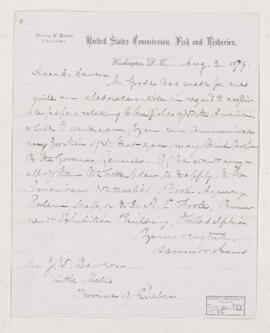 Spencer F. Baird,
Commissioner.
United States Commission, Fish and Fisheries,
Washington, D.C. Aug. 2, 1879.
Dear Dr Dawson
Mr Goode has made for me
quite an elaborate table in regard to
relating to the fishes of North America,
which I send you. If you can communicate
any portion of it that you may think
to the Governor General. If he wants any
all of them the better plan is to apply to the
American Naturalist's Book Agency,
Salem Mass, or to Dr A. E. Foote,
Exhibition Building, Philadelphia
Yours very truly,
Spencer F. Baird
J. W. Dawson
Little Metis
Province of Quebec